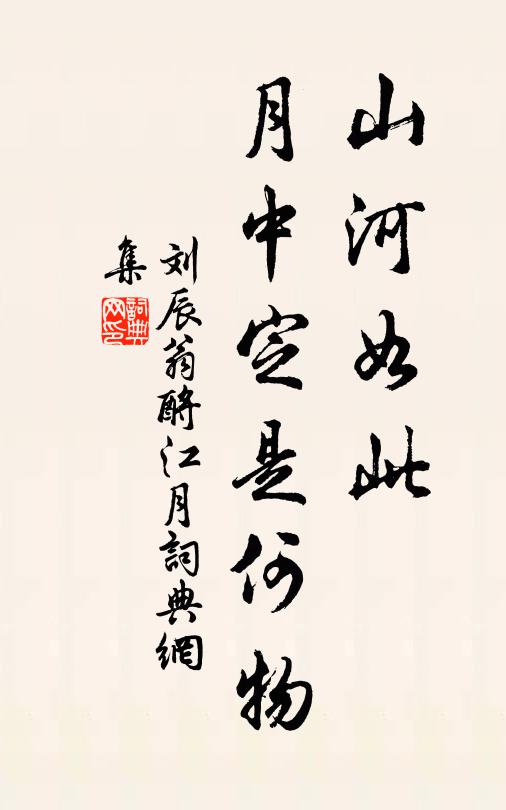 山河如此
月中定是何物
刘辰翁酹江月詞典網
集
詞典
网印